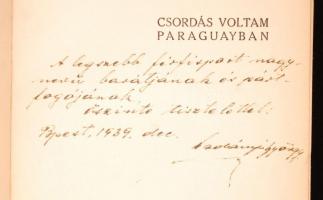 CSORDÁS VOLTAM
PARAGUAYBAN
A legszebb férfisport nagy-
nevű barátjának és párt-
fogójának
őszinte tisztelettel:
Bpest, 1939. dec.